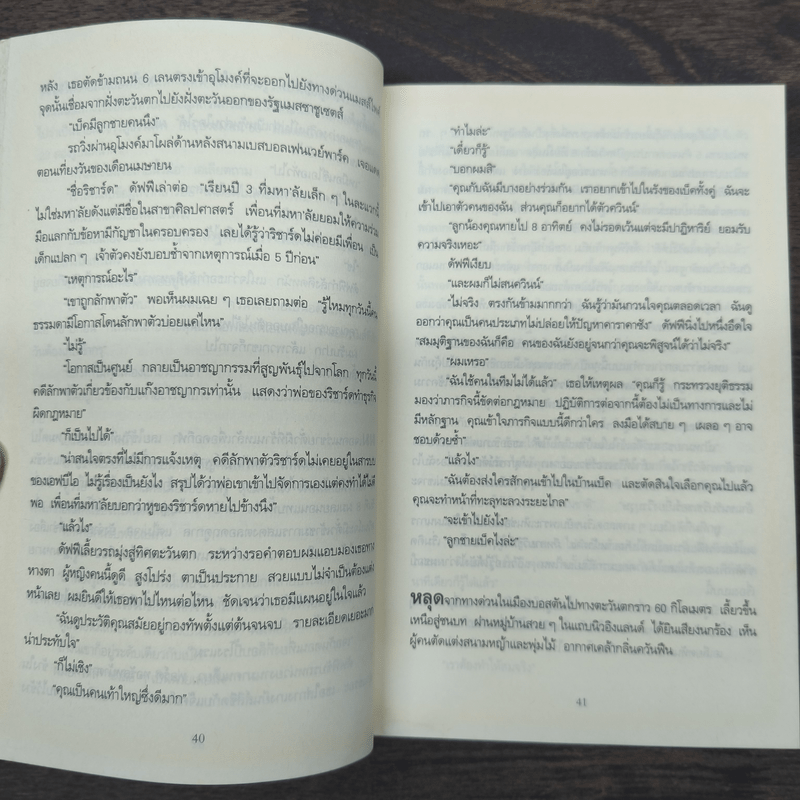 หลัง เธอตัดข้ามถนน 6 เลนตรงเข้าอุโมงค์ที่จะออกไปยังทางด่วนแมสส์ไพค์
จุดนั้นเชื่อมจากฝั่งตะวันตกไปยังฝั่งตะวันออกของรัฐแมสซาชูเซตส์
"เบ็คมีลูกชายคนนึง"
รถวิ่งผ่านอุโมงค์มาโผล่ด้านหลังสนามเบสบอลเฟนเวย์พาร์ค เจอแดด
ตอนเที่ยงวันของเดือนเมษายน
"ชื่อริชาร์ด" ดัฟฟีเล่าต่อ "เรียนปี 3 ที่มหา'ลัยเล็ก ๆ ในละแวกนี้
ไม่ใช่มหา'ลัยดังแต่มีชื่อในสาขาศิลปศาสตร์ เพื่อนที่มหา'ลัยยอมให้ความร่วม
มือแลกกับข้อหามีกัญชาในครอบครอง เลยได้รู้ว่าริชาร์ดไม่ค่อยมีเพื่อน เป็น
เด็กแปลก ๆ เจ้าตัวคงยังบอบช้ำจากเหตุการณ์เมื่อ 5 ปีก่อน"
"เหตุการณ์อะไร"
"เขาถูกลักพาตัว" พอเห็นผมเฉย ๆ เธอเลยถามต่อ "รู้ไหมทุกวันนี้คน
ธรรมดามีโอกาสโดนลักพาตัวบ่อยแค่ไหน"
"ไม่รู้"
"โอกาสเป็นศูนย์ กลายเป็นอาชญากรรมที่สูญพันธุ์ไปจากโลก ทุกวันนี้
คดีลักพาตัวเกี่ยวข้องกับแก๊งอาชญากรเท่านั้น แสดงว่าพ่อของริชาร์ดทำธุรกิจ
ผิดกฎหมาย"
"ก็เป็นไปได้"
"น่าสนใจตรงที่ไม่มีการแจ้งเหตุ คดีลักพาตัวริชาร์ดไม่เคยอยู่ในสารบบ
ของเอฟบีไอ ไม่รู้เรื่องเป็นยังไง สรุปได้ว่าพ่อเขาเข้าไปจัดการเองแต่คงทำได้ไม่ดี
พอ เพื่อนที่มหา'ลัยบอกว่าหูของริชาร์ดหายไปข้างนึง"
"แล้วไง"
ดัฟฟีเลี้ยวรถมุ่งสู่ทิศตะวันตก ระหว่างรอคำตอบผมแอบมองเธอทาง
หางตา ผู้หญิงคนนี้ดูดี สูงโปร่ง ตาเป็นประกาย สวยแบบไม่จำเป็นต้องแต่ง
หน้าเลย ผมยินดีให้เธอพาไปไหนต่อไหน ชัดเจนว่าเธอมีแผนอยู่ในใจแล้ว
"ฉันดูประวัติคุณสมัยอยู่กองทัพตั้งแต่ต้นจนจบ รายละเอียดเยอะมาก
น่าประทับใจ"
"ก็ไม่เชิง"
"คุณเป็นคนเท้าใหญ่ซึ่งดีมาก"
40
"ทำไมล่ะ"
"เดี๋ยวก็รู้"
"บอกผมสิ"
"คุณกับฉันมีบางอย่างร่วมกัน เราอยากเข้าไปในรังของเบ็คทั้งคู่ ฉันจะ
เข้าไปเอาตัวคนของฉัน ส่วนคุณก็อยากได้ตัวควินน์"
"ลูกน้องคุณหายไป 8 อาทิตย์ คงไม่รอดเว้นแต่จะมีปาฏิหาริย์ ยอมรับ
ความจริงเหอะ"
ดัฟฟีเงียบ
"และผมก็ไม่สนควินน์"
"ไม่จริง ตรงกันข้ามมากกว่า ฉันรู้ว่ามันกวนใจคุณตลอดเวลา ฉันดู
ออกว่าคุณเป็นคนประเภทไม่ปล่อยให้ปัญหาคาราคาซัง" ดัฟฟีนิ่งไปหนึ่งอึดใจ
"สมมุติฐานของฉันก็คือ คนของฉันยังอยู่จนกว่าคุณจะพิสูจน์ได้ว่าไม่จริง"
"ผมเหรอ"
"ฉันใช้คนในทีมไม่ได้แล้ว" เธอให้เหตุผล "คุณก็รู้ กระทรวงยุติธรรม
มองว่าภารกิจนี้ขัดต่อกฎหมาย ปฏิบัติการต่อจากนี้ต้องไม่เป็นทางการและไม่
มีหลักฐาน คุณเข้าใจภารกิจแบบนี้ดีกว่าใคร ลงมือได้สบาย ๆ เผลอ ๆ อาจ
ชอบด้วยซ้ำ"
"แล้วไง"
"ฉันต้องส่งใครสักคนเข้าไปในบ้านเบ็ค และตัดสินใจเลือกคุณไปแล้ว
คุณจะทำหน้าที่ทะลุทะลวงระยะไกล"
"จะเข้าไปยังไง"
"ลูกชายเบ็คไงล่ะ"
หลุดจากทางด่วนในเมืองบอสตันไปทางตะวันตกราว 60 กิโลเมตร เลี้ยวขึ้น
เหนือสู่ชนบท ผ่านหมู่บ้านสวย ๆ ในแถบนิวอิงแลนด์ ได้ยินเสียงนกร้อง เห็น
ผู้คนตัดแต่งสนามหญ้าและพุ่มไม้ อากาศเคล้ากลิ่นควันฟืน
41